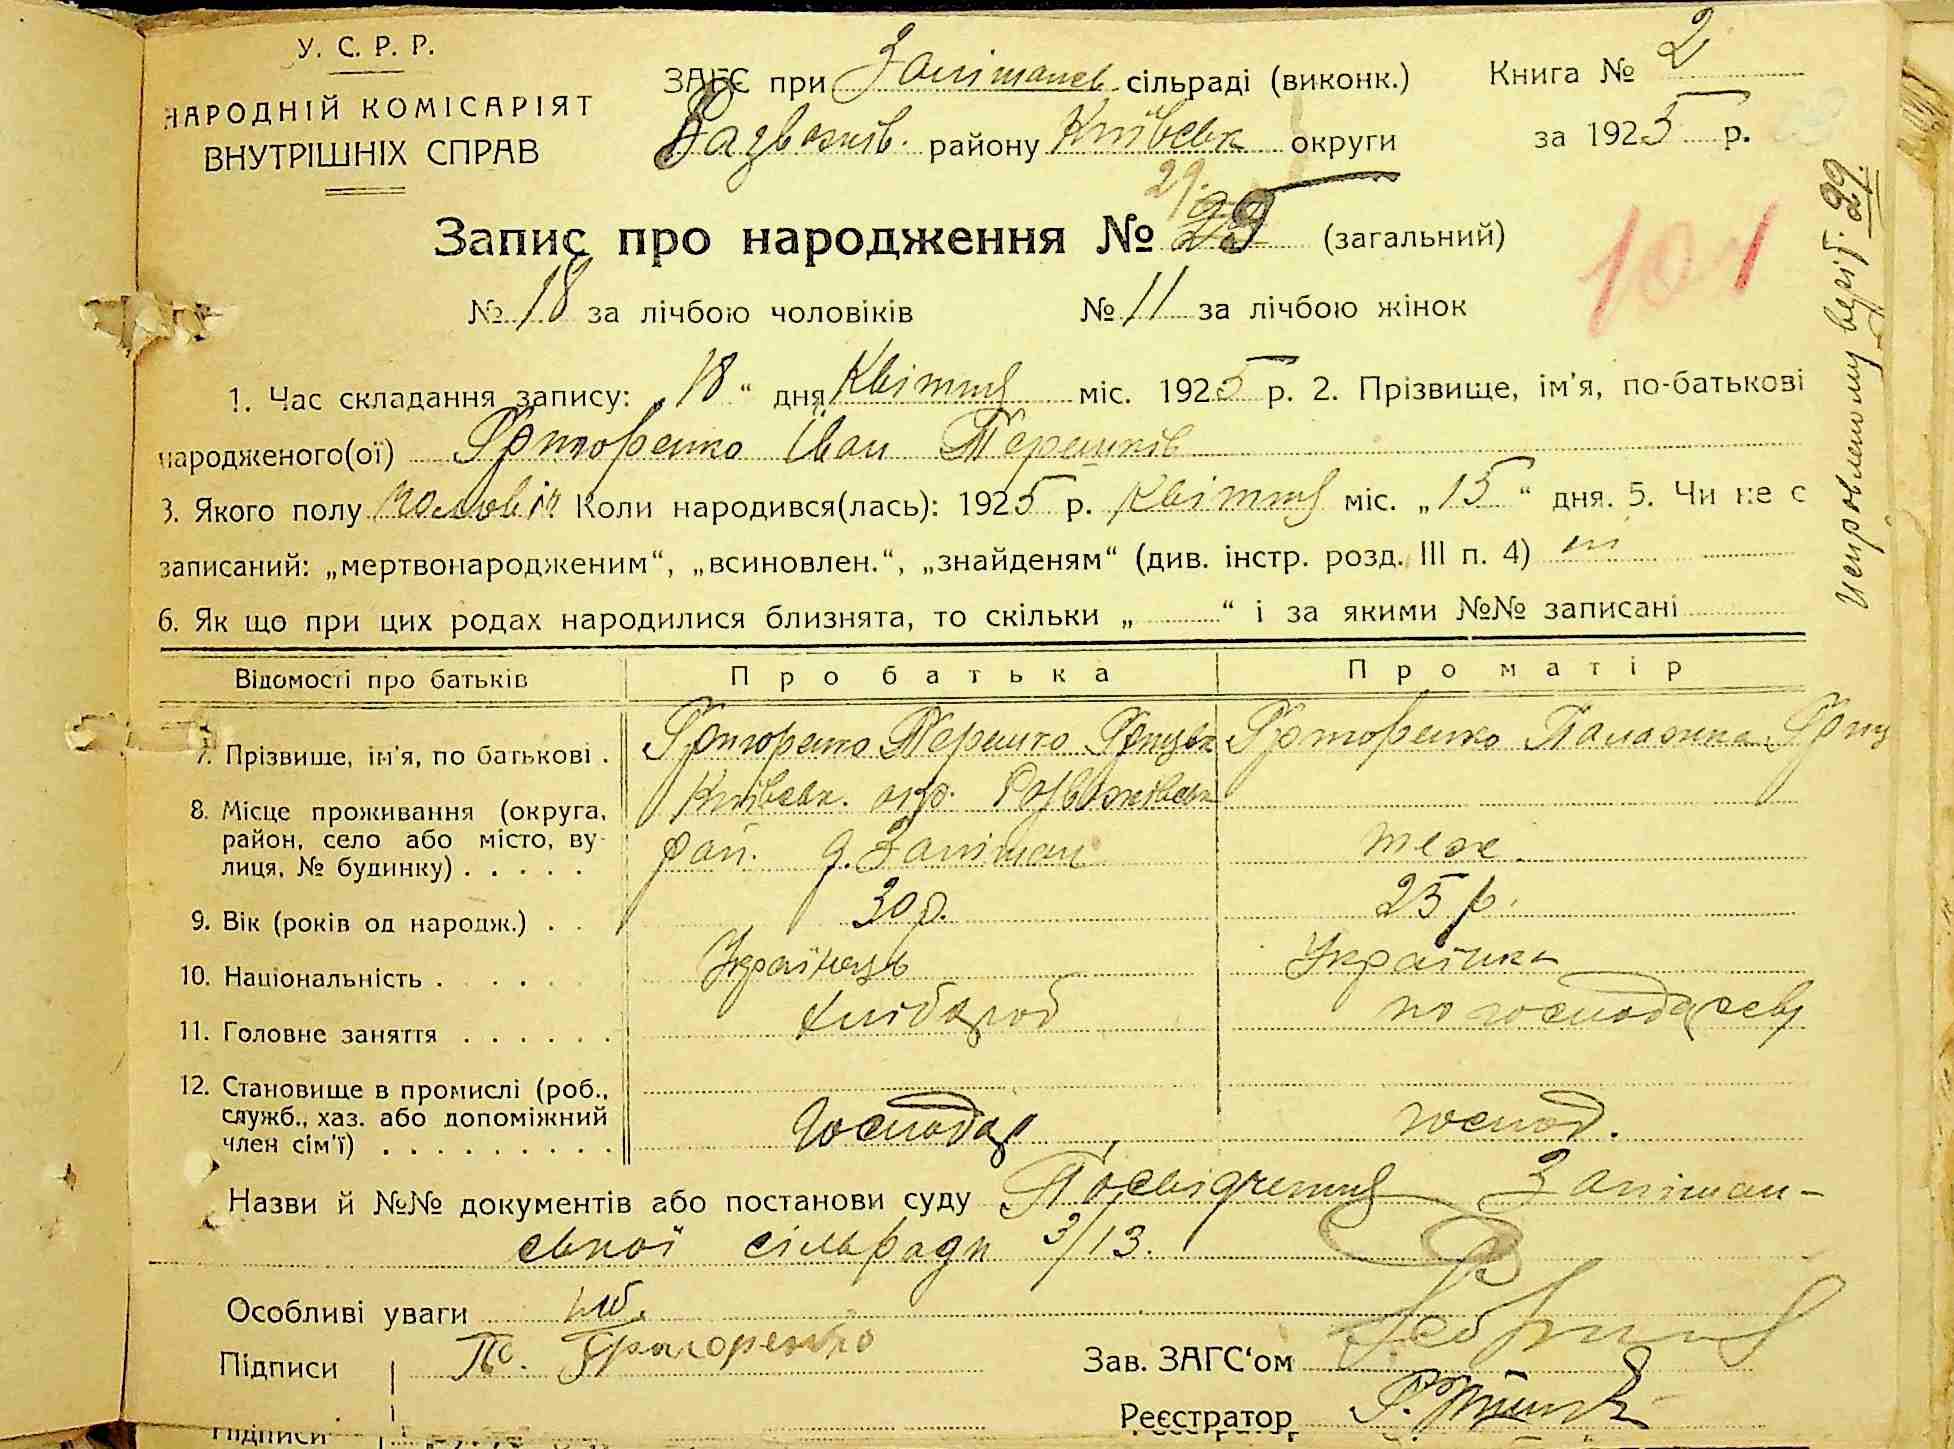 У. С. Р. Р.
НАРОДНІЙ КОМІСАРІЯТ
ВНУТРІШНІХ СПРАВ
ЗАГС при сільраді (виконк.)
району Київськ округи
Книга № 2
за 1925 р.
29.
Запис про народження № 29 (загальний)
101
№ 18 за лічбою чоловіків № 11 за лічбою жінок
1. Час складання запису: „18“ дня Квітня міс. 1925 р. 2. Прізвище, ім'я, по-батькові
народженого(ої) Григоренко Іван Терешків
3. Якого полу чоловік Коли народився(лась): 1925 р. Квітня міс. „15“ дня. 5. Чи не є
записаний: „мертвонародженим“, „всиновлен.“, „знайденям“ (див. інстр. розд. III п. 4) ні
6. Як що при цих родах народилися близнята, то скільки „ “ і за якими №№ записані
Відомості про батьків Про батька Про матір
7. Прізвище, ім'я, по батькові . Григоренко Терешко Григоренко Палажка
8. Місце проживання (округа, Київськ. окр. Розважівськ
район, село або місто, ву-
лиця, № будинку) . . . . . рай. теж.
9. Вік (років од народж.) . . 30 р. 25 р.
10. Національність . . . . . . Українець Українка
11. Головне заняття . . . . . . хлібороб по господарству
12. Становище в промислі (роб.,
служб., хаз. або допоміжний
член сім'ї) . . . . . . . . . господар господ.
Назви й №№ документів або постанови суду Посвідчення
ської сільради 3/13.
Особливі уваги
Підписи Григоренко
Зав. ЗАГС'ом
Реєстратор
Підписи
Исправленому веріт. 29